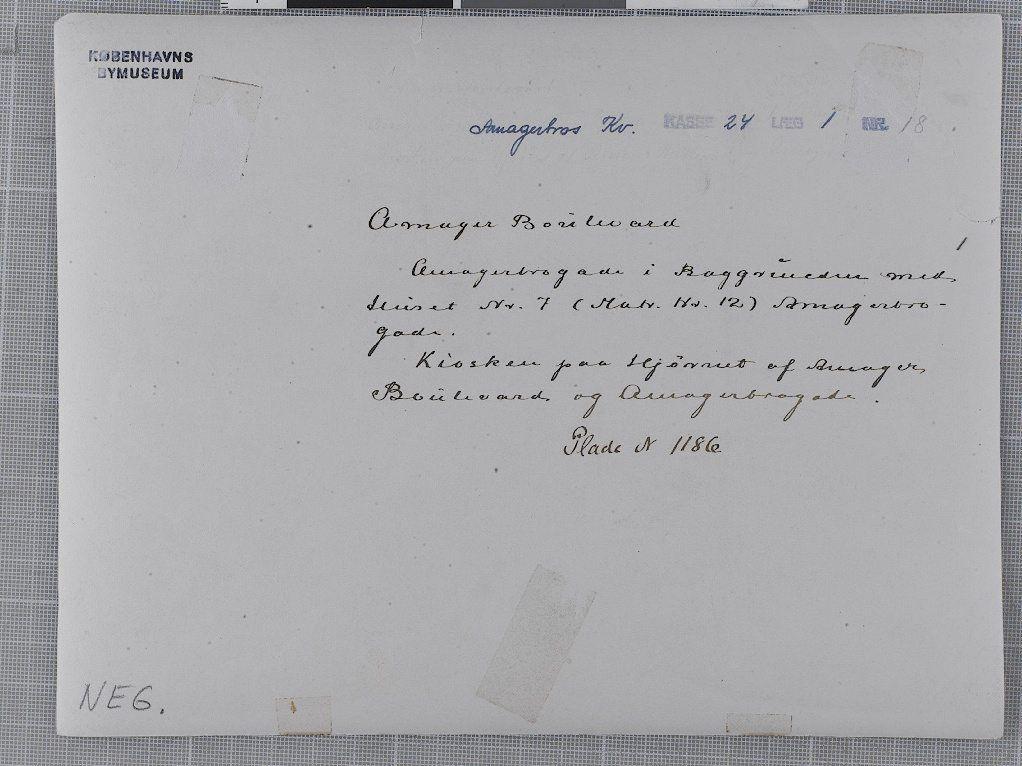 KØBENHAVNS
BYMUSEUM
Amagerbros Kv. KASSE 24 LÆG 1 NR. 18
Amager Boulevard
1
Amagerbrogade i Baggrunden med
Huset Nr. 7 (Matr. Nr. 12) Amagerbro-
gade.
Kiosken paa Hjørnet af Amager
Boulevard og Amagerbrogade.
Plade N 1186
NEG.